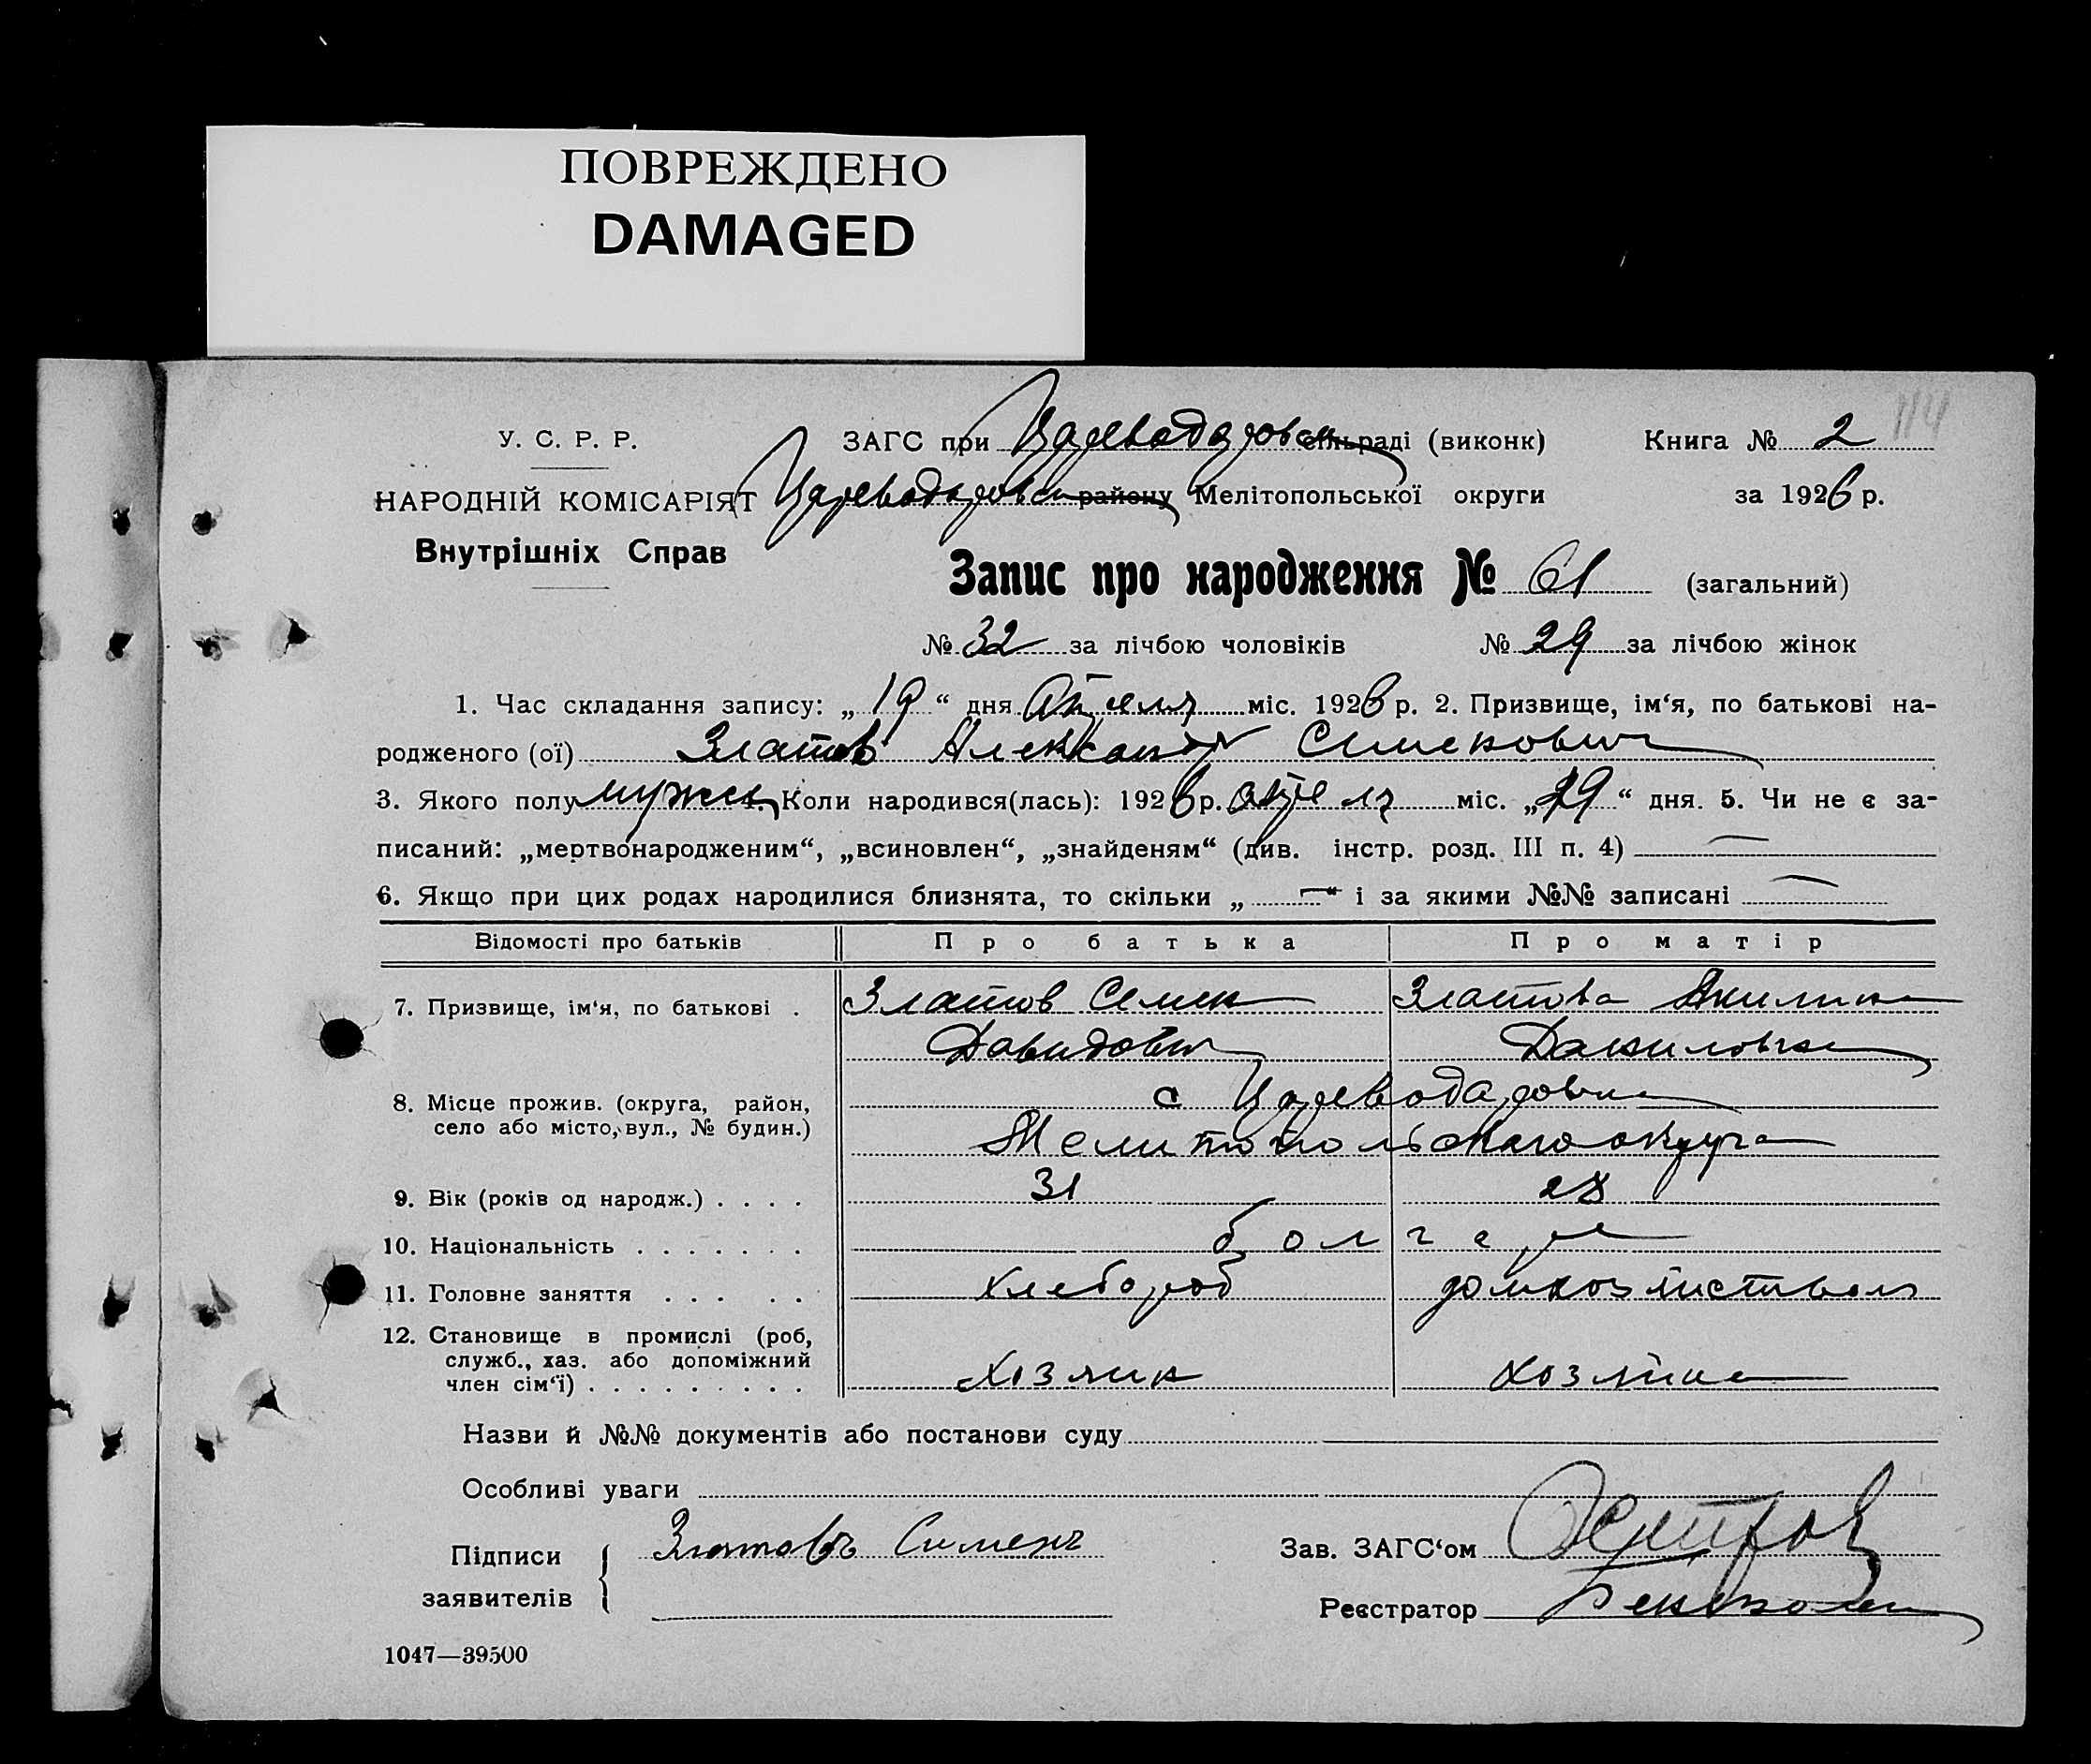 ПОВРЕЖДЕНО
DAMAGED
114
У. С. Р. Р. ЗАГС при Цареводаровск сільраді (виконк) Книга № 2
НАРОДНІЙ КОМІСАРІЯТ Цареводаровск району Мелітопольської округи за 1926 р.
Внутрішніх Справ
Запис про народження № 61 (загальний)
№ 32 за лічбою чоловіків № 29 за лічбою жінок
1. Час складання запису: „ 19 “ дня Апреля міс. 1926 р. 2. Призвище, ім‘я, по батькові на-
родженого (ої) Златов Александр Семенович
3. Якого полу мужск 4. Коли народився(лась): 1926 р. апреля міс. „ “ дня. 5. Чи не є за-
писаний: „мертвонародженим“, „всиновлен“, „знайденям“ (див. інстр. розд. III п. 4) —
6. Якщо при цих родах народилися близнята, то скільки „ — “ і за якими №№ записані —
Відомості про батьків Про батька Про матір
7. Призвище, ім‘я, по батькові . Златов Семен Златова
Давидович Даниловна
8. Місце прожив. (округа, район, с Цареводаровка
село або місто, вул., № будин.) Мелитопольского округа
9. Вік (років од народж.) . . . . 31 28
10. Національність . . . . . . . болгаре
11. Головне заняття . . . . . хлебороб домхозяйством
12. Становище в промислі (роб,
служб., хаз. або допоміжний
член сім‘ї) . . . . . . . . . хозяин хозяйка
Назви й №№ документів або постанови суду
Особливі уваги
Підписи Златовъ Сименъ Зав. ЗАГС‘ом
заявителів Реєстратор
1047—39500